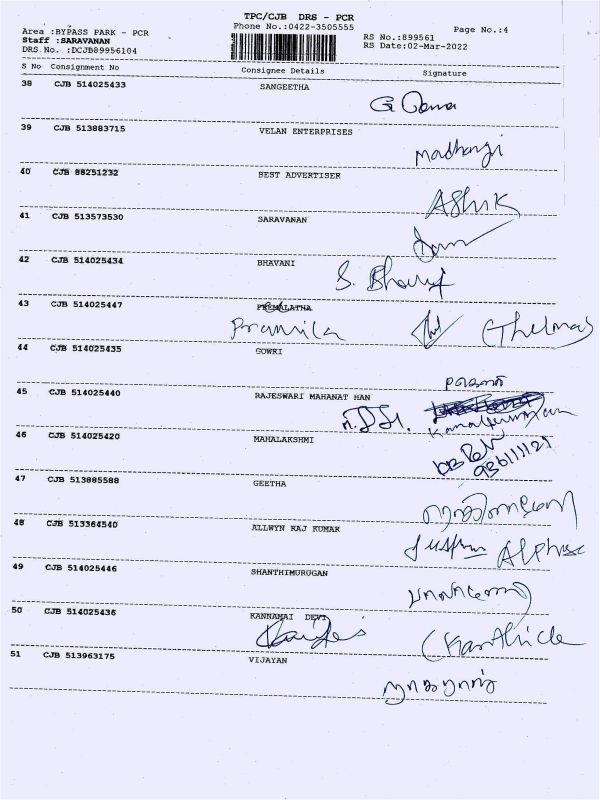 TPC/CJB DRS - PCR
Area :BYPASS PARK - PCR
Phone No.:0422-3505555
Page No.:4
Staff :SARAVANAN
RS No.:899561
DRS.No. :DCJB89956104
RS Date:02-Mar-2022
S No Consignment No Consignee Details Signature
38 CJB 514025433 SANGEETHA
39 CJB 513883715 VELAN ENTERPRISES
Madhangi
40 CJB 88251232 BEST ADVERTISER
Ashik
41 CJB 513573530 SARAVANAN
42 CJB 514025434 BHAVANI
S. Bhavani
43 CJB 514025447 PREMALATHA
Pramila
(Thelmas
44 CJB 514025435 GOWRI
45 CJB 514025440 RAJESWARI MAHANAT HAN
46 CJB 514025420 MAHALAKSHMI
47 CJB 513885588 GEETHA
48 CJB 513364540 ALLWYN RAJ KUMAR
49 CJB 514025446 SHANTHIMURUGAN
50 CJB 514025436 KANNAMAI DEVI
51 CJB 513963175 VIJAYAN